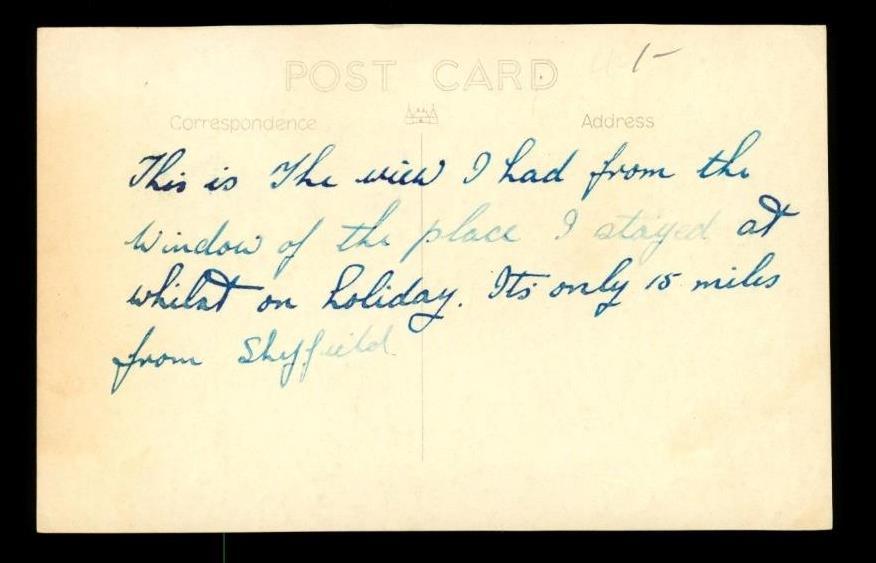 POST CARD
1-
Correspondence
Address
This is The view I had from the
window of the place I stayed at
whilst on holiday. Its only 15 miles
from Sheffield.